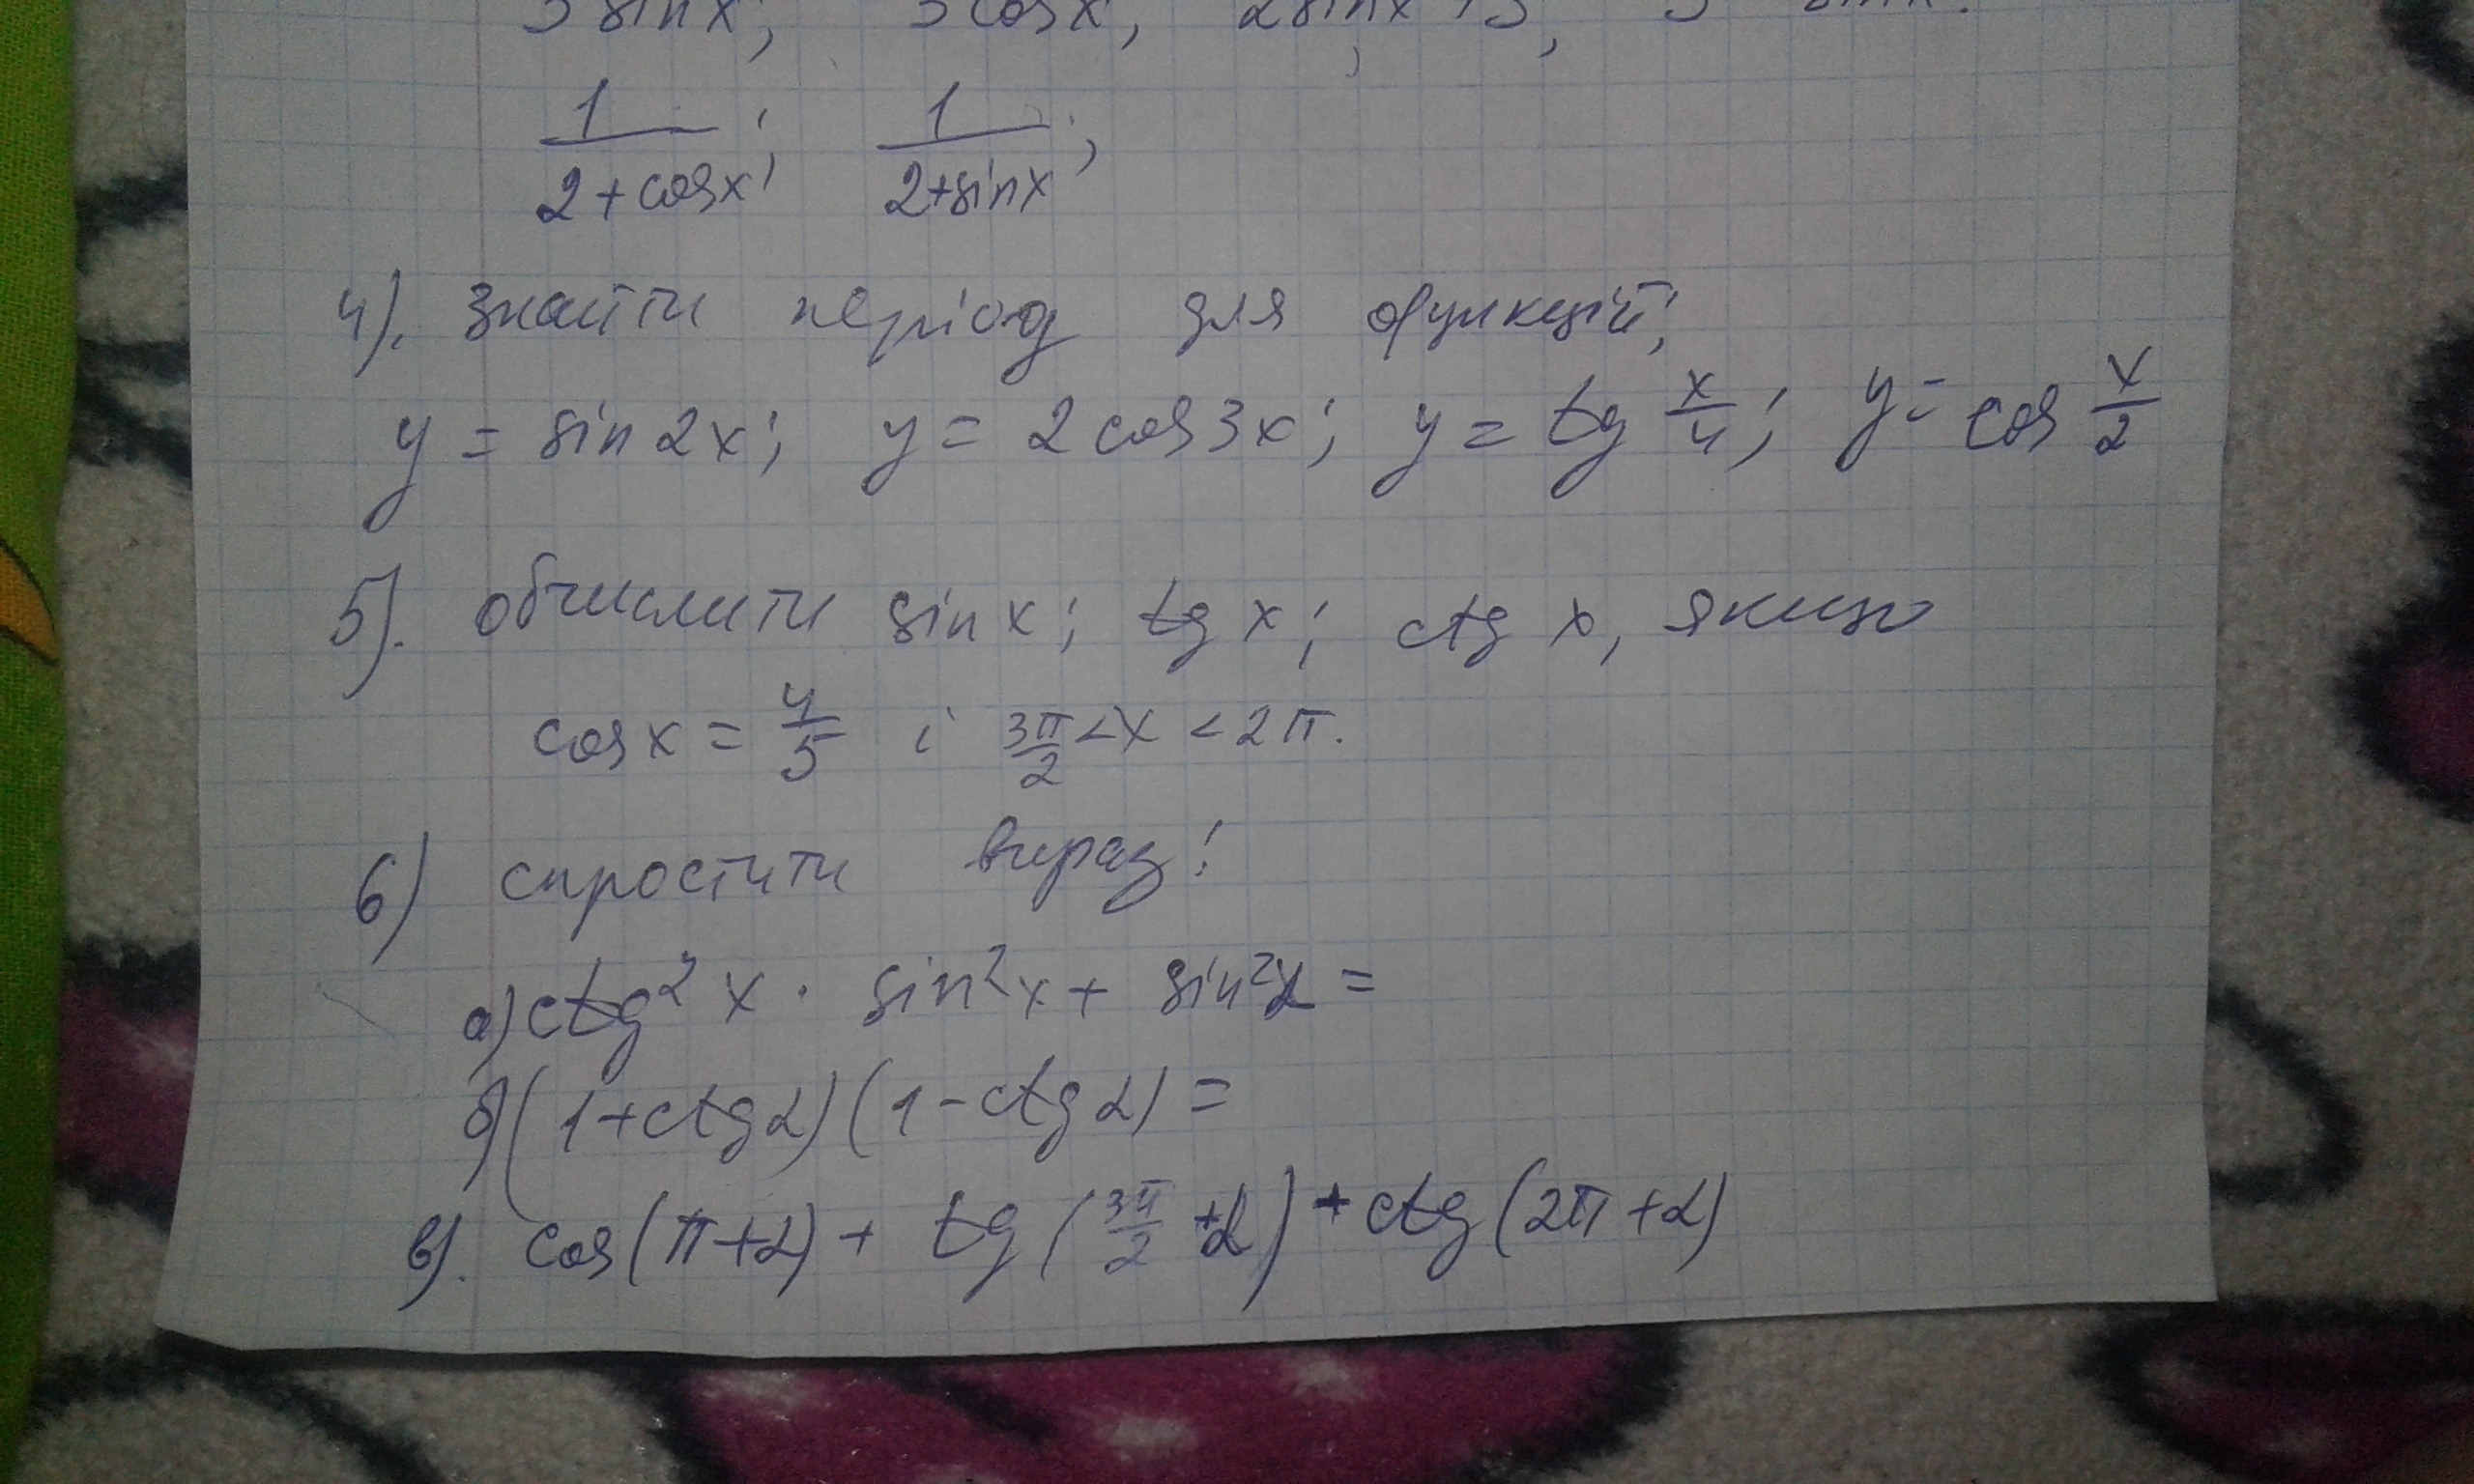 3 sin x; 3 cos x, 2 sin x + 3, 3 - sin x.
1/(2+cos x); 1/(2+sin x);
4). знайти період для функцій;
y = sin 2x; y = 2 cos 3x; y = tg x/4; y = cos x/2
5). обчислити sin x; tg x; ctg x, якщо
cos x = 4/5 і 3π/2 < x < 2π.
6) спростити вираз:
а) ctg² x · sin² x + sin² α =
б) (1 + ctg α)(1 - ctg α) =
в). cos(π+α) + tg(3π/2 + α) + ctg(2π+α)